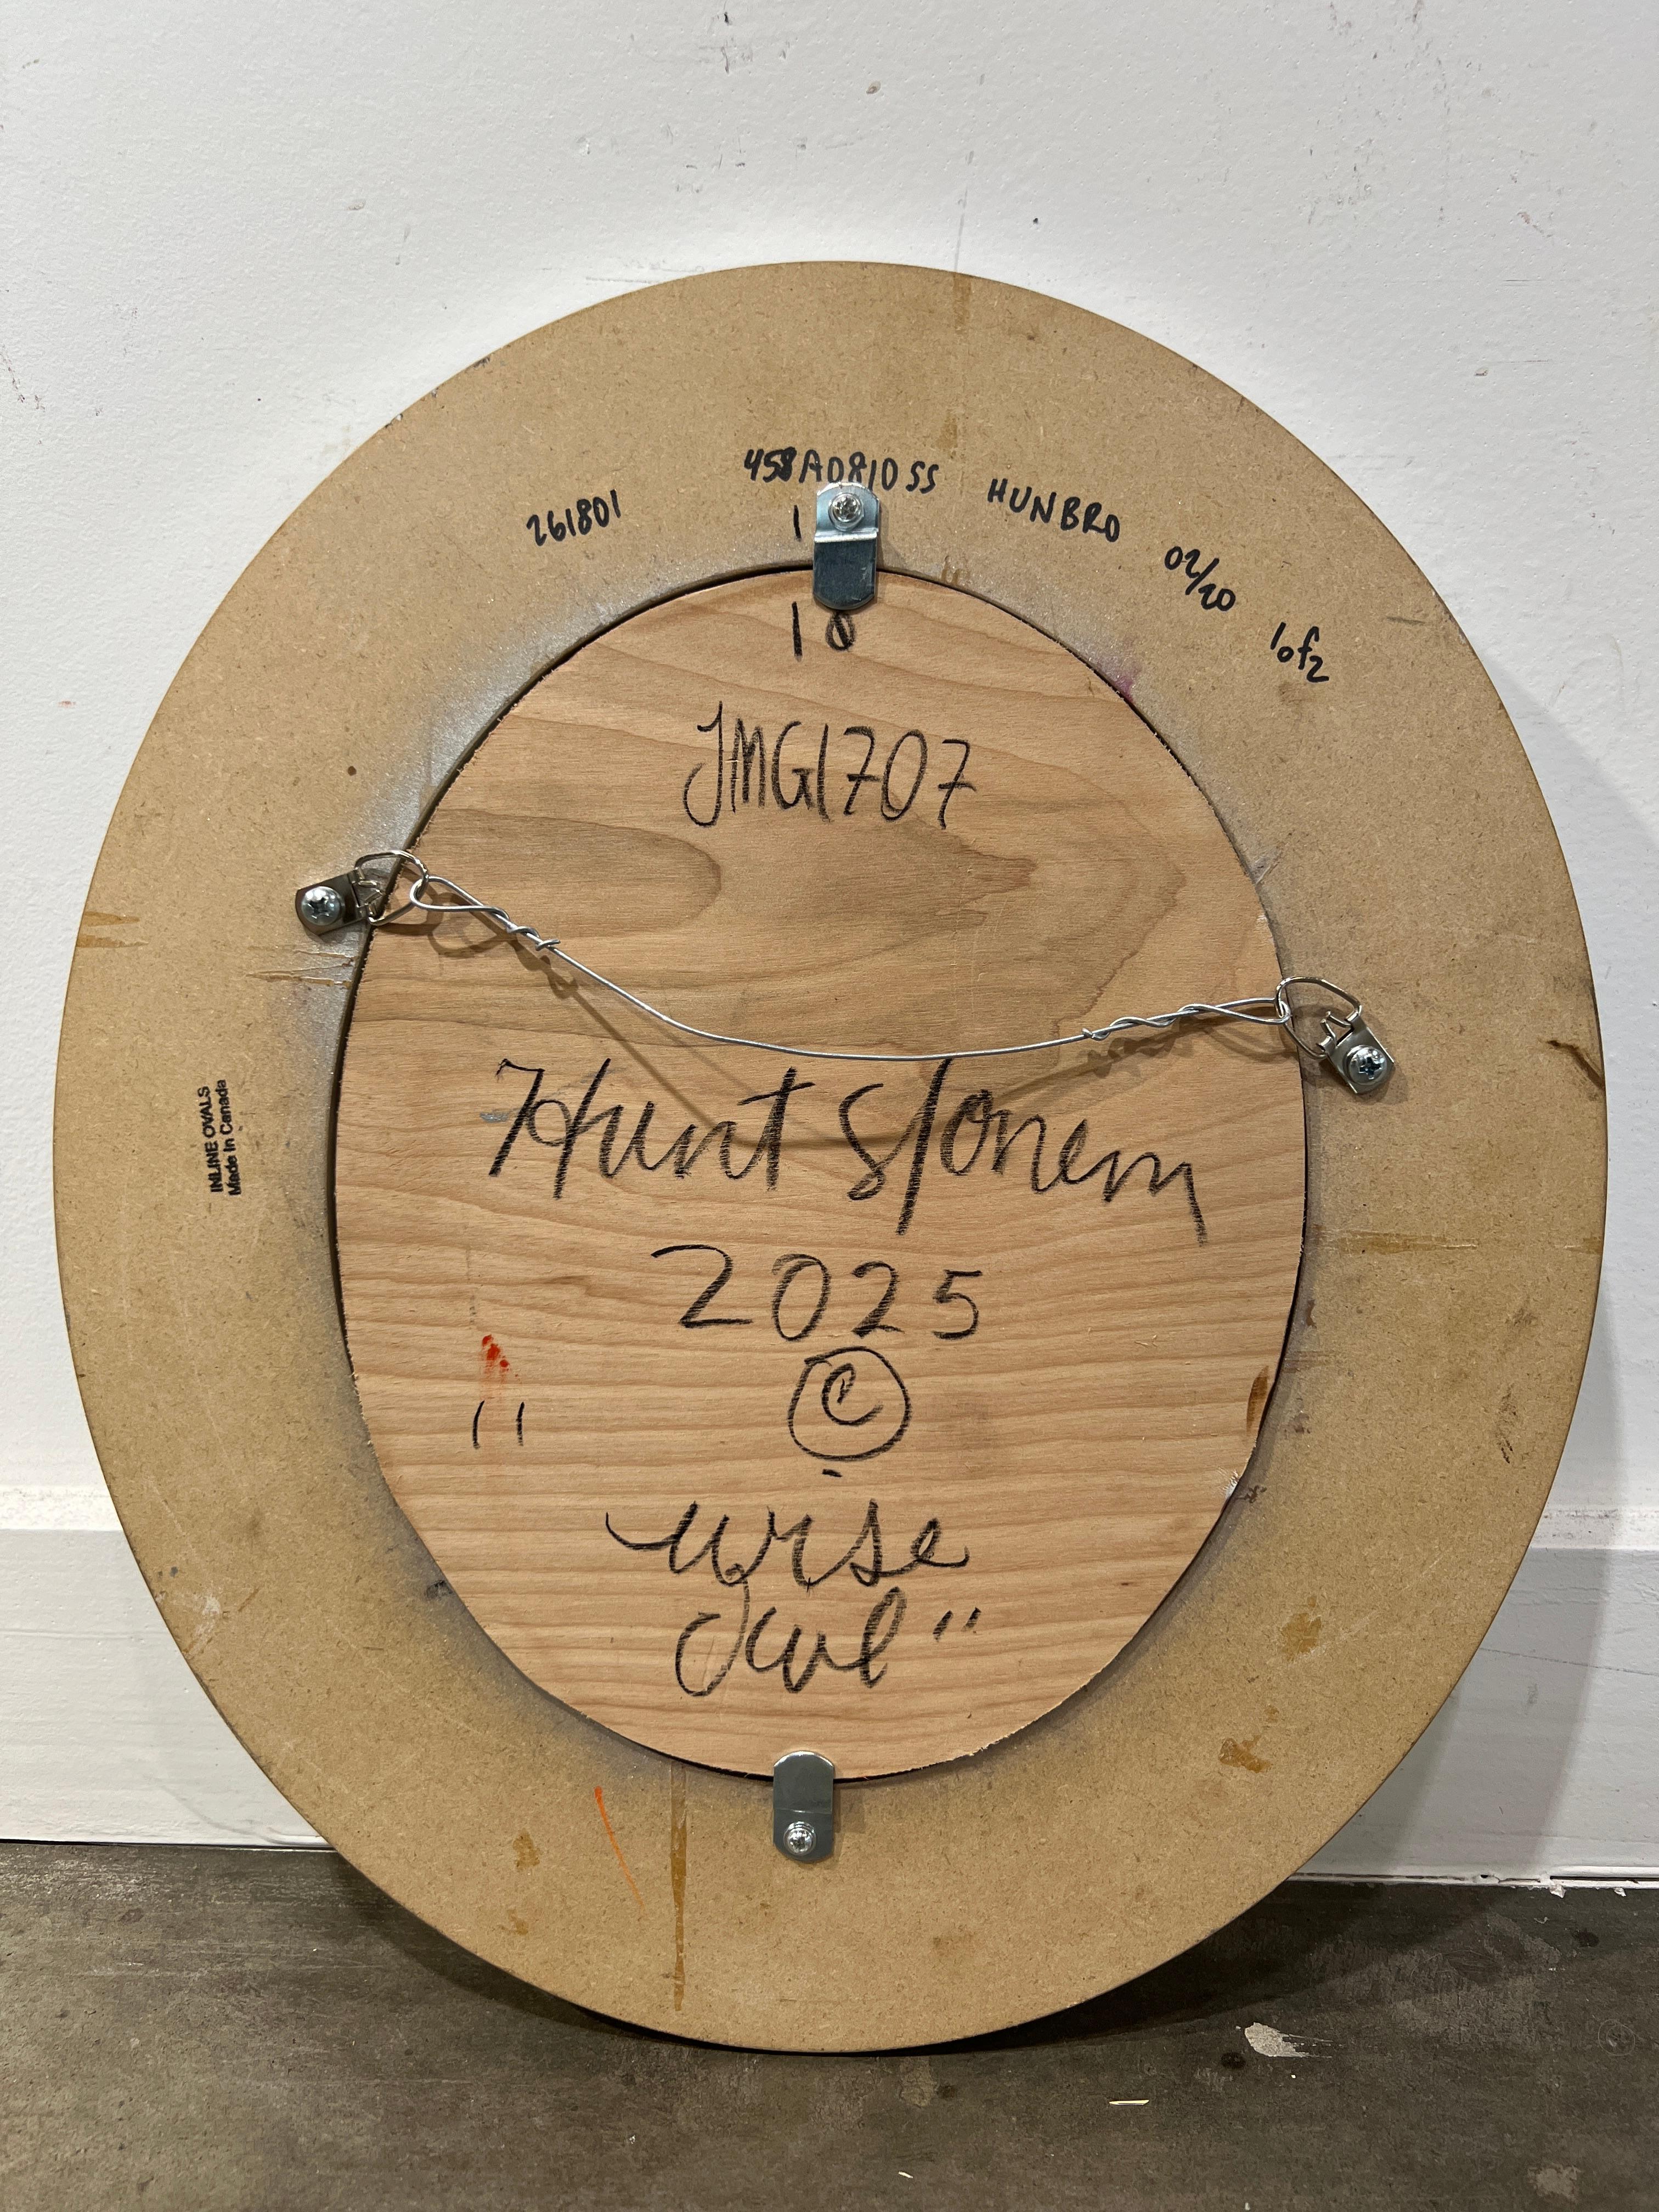 458A0810SS HUNBRO
261801
02/20
1 of 2
1
1
JMG1707
INLINE OVALS
Made In Canada
Hunt Slonem
2025
©
"wise
owl"